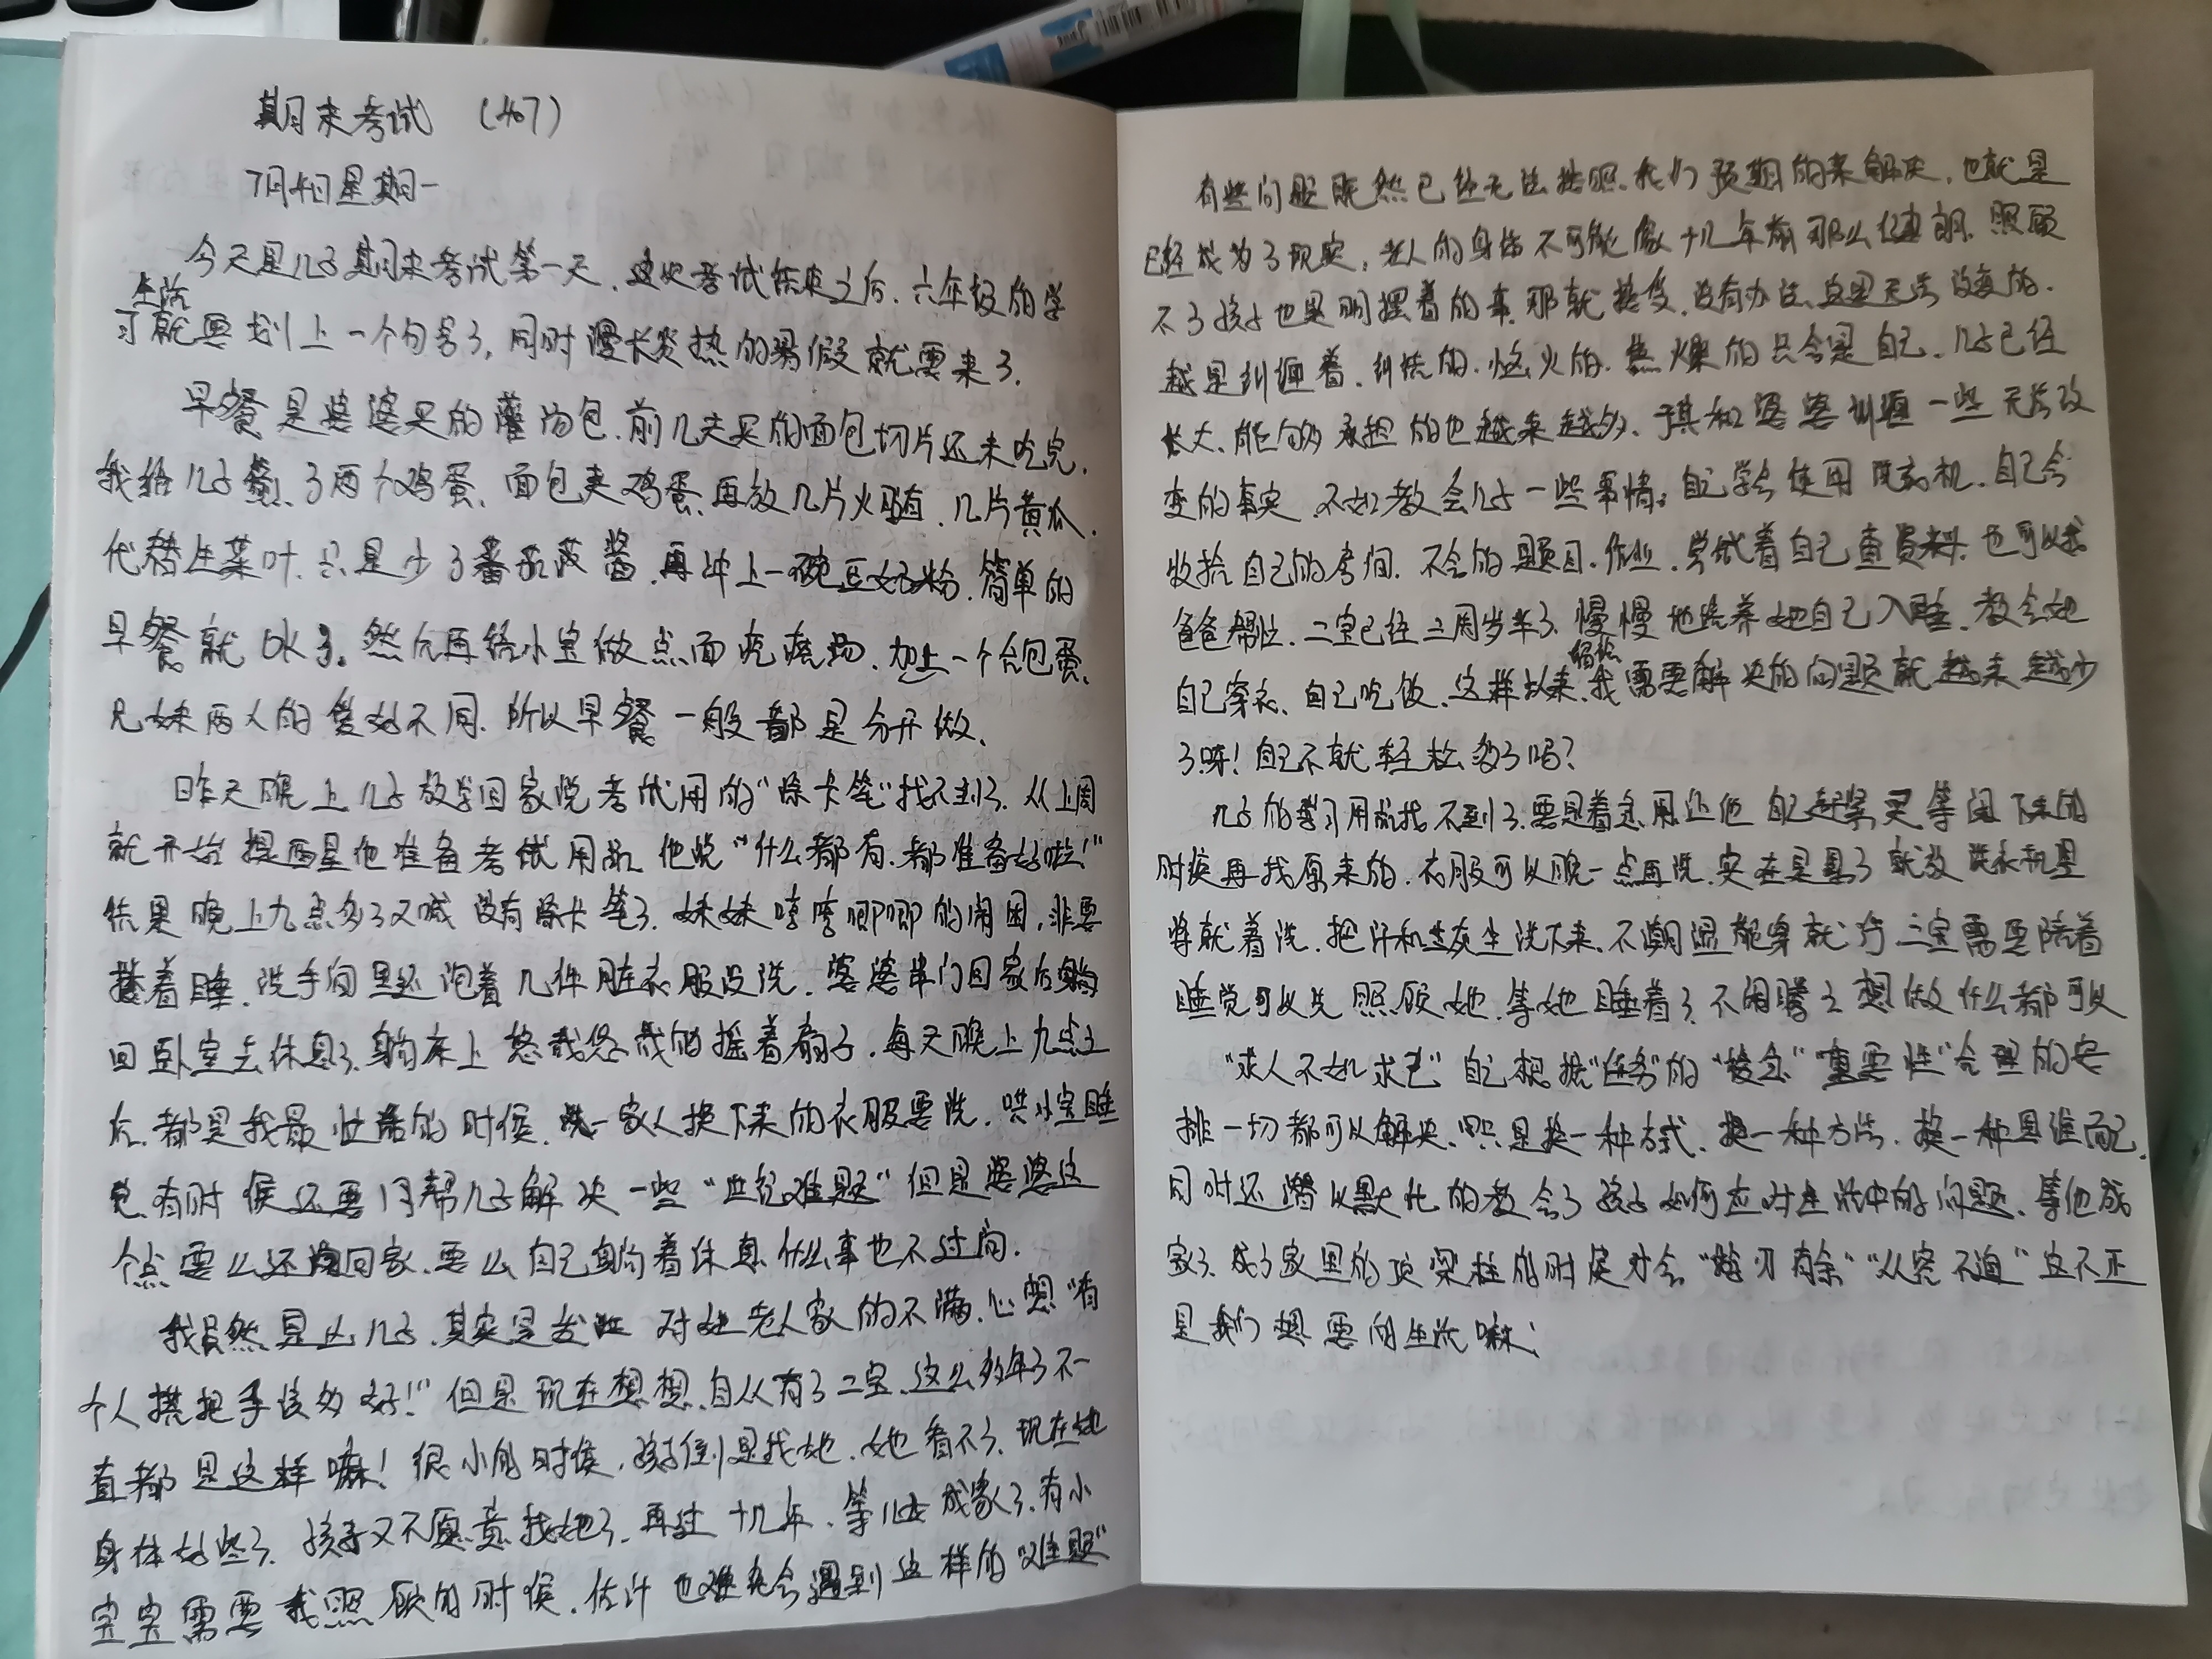 期末考试 (407)
7月4日星期一
今天是儿子期末考试第一天、这次考试结束之后、六年级的学
习生活就要划上一个句号了,同时漫长炎热的暑假就要来了.
早餐是婆婆买的灌汤包.前几天买的面包切片还未吃完.
我给儿子煎了两个鸡蛋、面包夹鸡蛋、再放几片火腿、几片黄瓜.
代替生菜叶.只是少了番茄酱、再冲上一碗豆奶粉.简单的
早餐就OK了。然后再给小宝做点面疙瘩汤、加上一个荷包蛋.
兄妹两人的爱好不同.所以早餐一般都是分开做、
昨天晚上儿子放学回家说考试用的“涂卡笔”找不到了.从上周
就开始提醒他准备考试用品.他说“什么都有.都准备好啦!”
结果晚上九点多了又喊没有涂卡笔了.妹妹哼哼唧唧的闹困,非要
搂着睡.洗手间里还泡着几件脏衣服没洗.婆婆串门回家后躺
回卧室去休息了.躺床上悠哉悠哉的摇着扇子.每天晚上九点之
后.都是我最忙活的时候、一家人换下来的衣服要洗.哄小宝睡
觉.有时候还要帮儿子解决一些“世纪难题”但是婆婆这
个点要么还没回家、要么自己躺着休息.什么事也不过问.
我虽然是凶儿子.其实是发泄对她老人家的不满.心想“有
个人搭把手该多好!”但是现在想想.自从有了二宝、这么多年了不一
直都是这样嘛!很小的时候.孩子倒是找她.她看不了.现在她
身体好些了.孩子又不愿意找她了.再过十几年.等儿子成家了.有小
宝宝需要我照顾的时候.估计也难免会遇到这样的“难题”
有些问题既然已经无法按照我们预期的来解决.也就是
已经成为了现实,老人的身体不可能像十几年前那么健朗.照顾
不了孩子也是明摆着的事.那就接受.没有办法.这是无法改变的.
越是纠缠着、纠结的.恼火的.焦燥的只会是自己、儿子已经
长大.能够承担的也越来越多、于其和婆婆纠缠一些无法改
变的事实、不如教会儿子一些事情。自己学会使用洗衣机.自己会
收拾自己的房间.不会的题目.作业.尝试着自己查资料.也可以找
爸爸帮忙.二宝已经三周岁半了.慢慢地培养她自己入睡.教会她
自己穿衣、自己吃饭、这样以来.我需要解决的问题就越来越少
了呀!自己不就轻松多了吗?
儿子的学习用品找不到了.要是着急用让他自己赶紧买.等闲下来的
时候再找原来的.衣服可以晚一点再洗.实在是累了就放洗衣机里
将就着洗.把汗和灰尘洗下来、不潮湿能穿就行.二宝需要陪着
睡觉可以先照顾她.等她睡着了.不闹腾了.想做什么都可以
“求人不如求己”自己根据“任务”的“接急”“重要性”合理的安
排一切都可以解决.只是换一种方式.换一种方法.换一种思维而已.
同时还潜以默化的教会了孩子如何应对生活中的问题、等他成
家了.成了家里的顶梁柱的时候才会“游刃有余”“从容不迫”这不正
是我们想要的生活嘛!